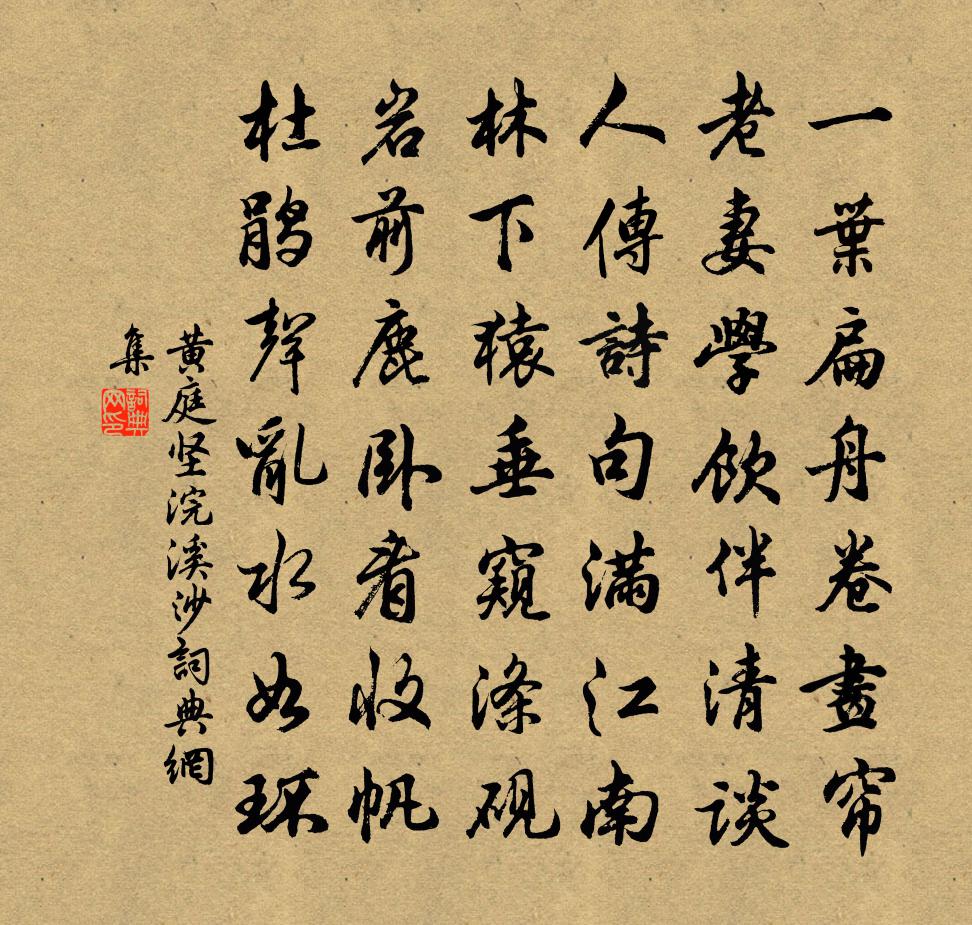 一葉扁舟卷畫帘
老妻學飲伴清談
人傳詩句滿江南
林下猿垂窺滌硯
岩前鹿卧看收帆
杜鹃聲亂水如环
黄庭坚浣溪沙詞典網
集
詞典
网印